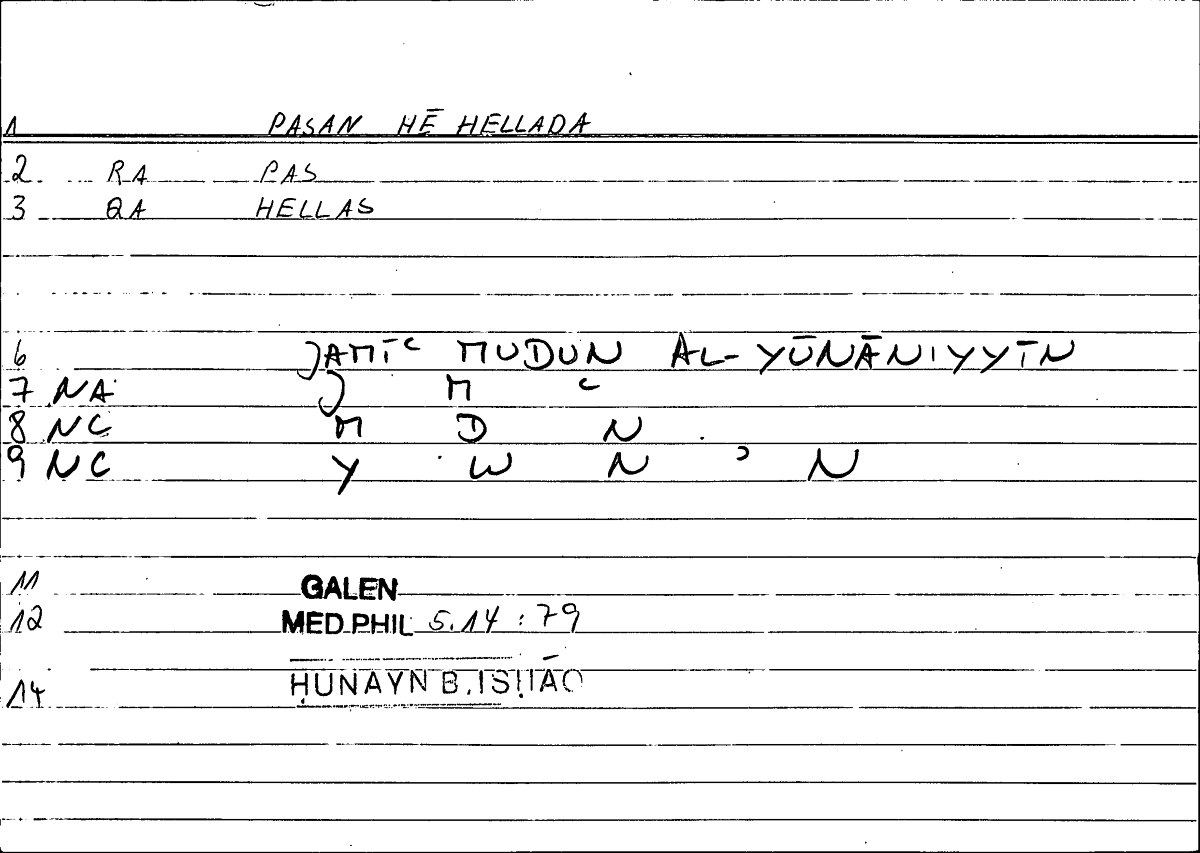 1 PASAN HĒ HELLADA
2 RA PAS
3 QA HELLAS
6 JAMĪʿ MUDUN AL-YŪNĀNIYYĪN
7 NA J M ʿ
8 NC M D N
9 NC Y W N ʾ N
11 GALEN
12 MED.PHIL 5.14 : 79
14 ḤUNAYN B. ISḤĀQ